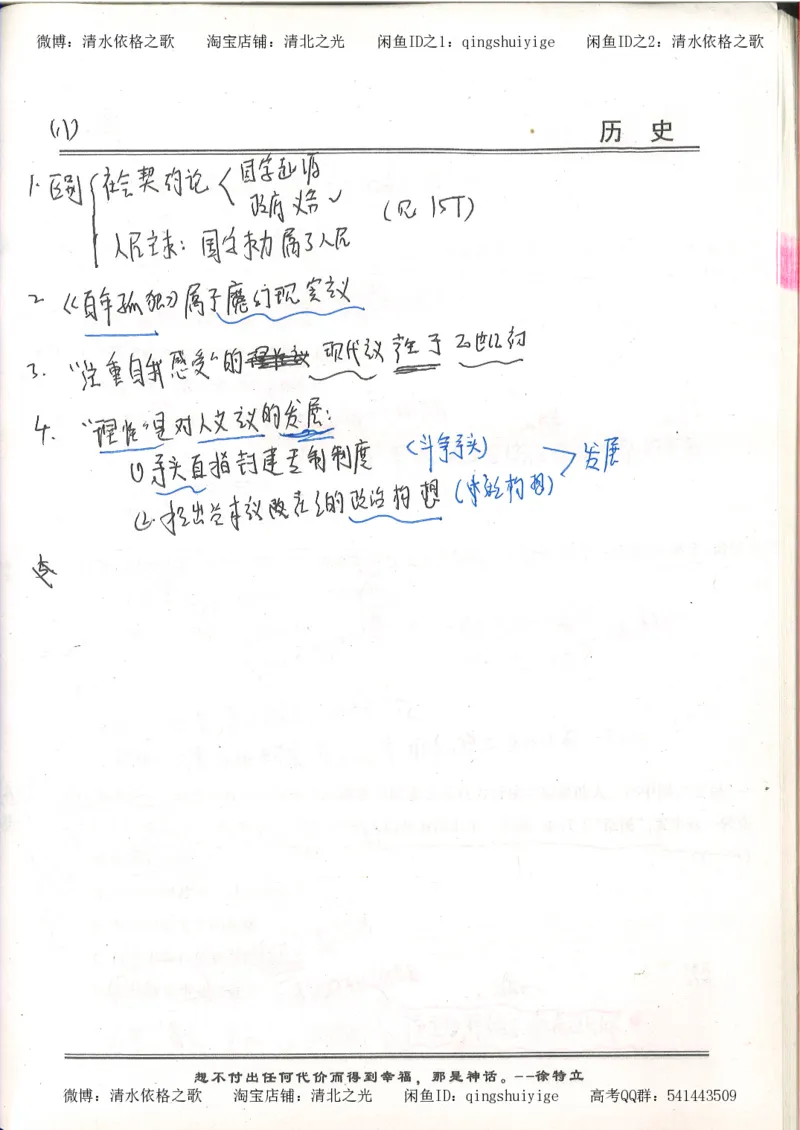 微博：清水依格之歌 淘宝店铺：清北之光 闲鱼ID之1：qingshuiyige 闲鱼ID之2：清水依格之歌
(八)
历 史
1. 区别 社会契约论 国家起源
政府义务 (见15T)
人民主权：国家权力属于人民
2 《百年孤独》属于魔幻现实主义
3. "注重自我感受"的 现代主义 产生于 20世纪初
4. "理性"是对人文主义的发展：
① 矛头直指封建专制制度 (斗争矛头) 发展
②. 提出资本主义政治构想 (未来构想)
想不付出任何代价而得到幸福，那是神话。--徐特立
微博：清水依格之歌 淘宝店铺：清北之光 闲鱼ID：qingshuiyige 高考QQ群：541443509